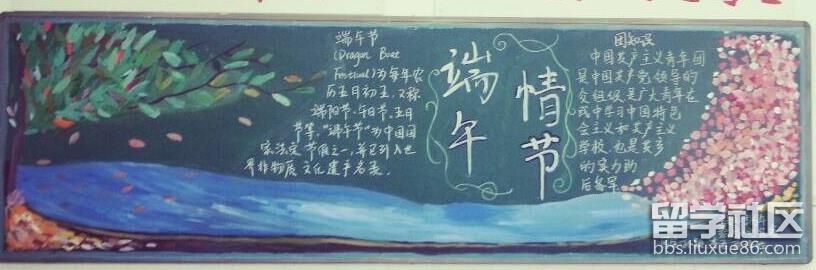 端午节
(Dragon Boat
Festival)为每年农
历五月初五,又称
端阳节、午日节、五月
节等。"端午节"为中国国
家法定节假之一,并已列入世
界非物质文化遗产名录。
端午
情节
团知识
中国共产主义青年团
是中国共产党领导的
组织,是广大青年在
中学习中国特色
会主义和共产主义
学校,也是共
的
后备军
留学社区
bbs.liuxue86.com